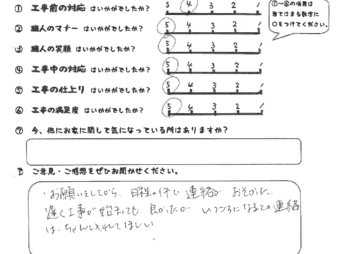 ① 工事前の対応 はいかがでしたか? 5 4 3 2 1
② 職人のマナー はいかがでしたか? 5 4 3 2 1
③ 職人の笑顔 はいかがでしたか? 5 4 3 2 1
④ 工事中の対応 はいかがでしたか? 5 4 3 2 1
⑤ 工事の仕上り はいかがでしたか? 5 4 3 2 1
⑥ 工事の満足度 はいかがでしたか? 5 4 3 2 1
①~⑥の項目は
当てはまる数字に
○をつけてください。
⑦ 今、他にお家に関して気になっている所はありますか?
⑧ ご意見・ご感想をぜひお聞かせください。
お願いをしてから、の件で連絡がおそかった
遅く工事が始まっても良かったが いつごろになるとの連絡
は、ちゃんと入れてほしい